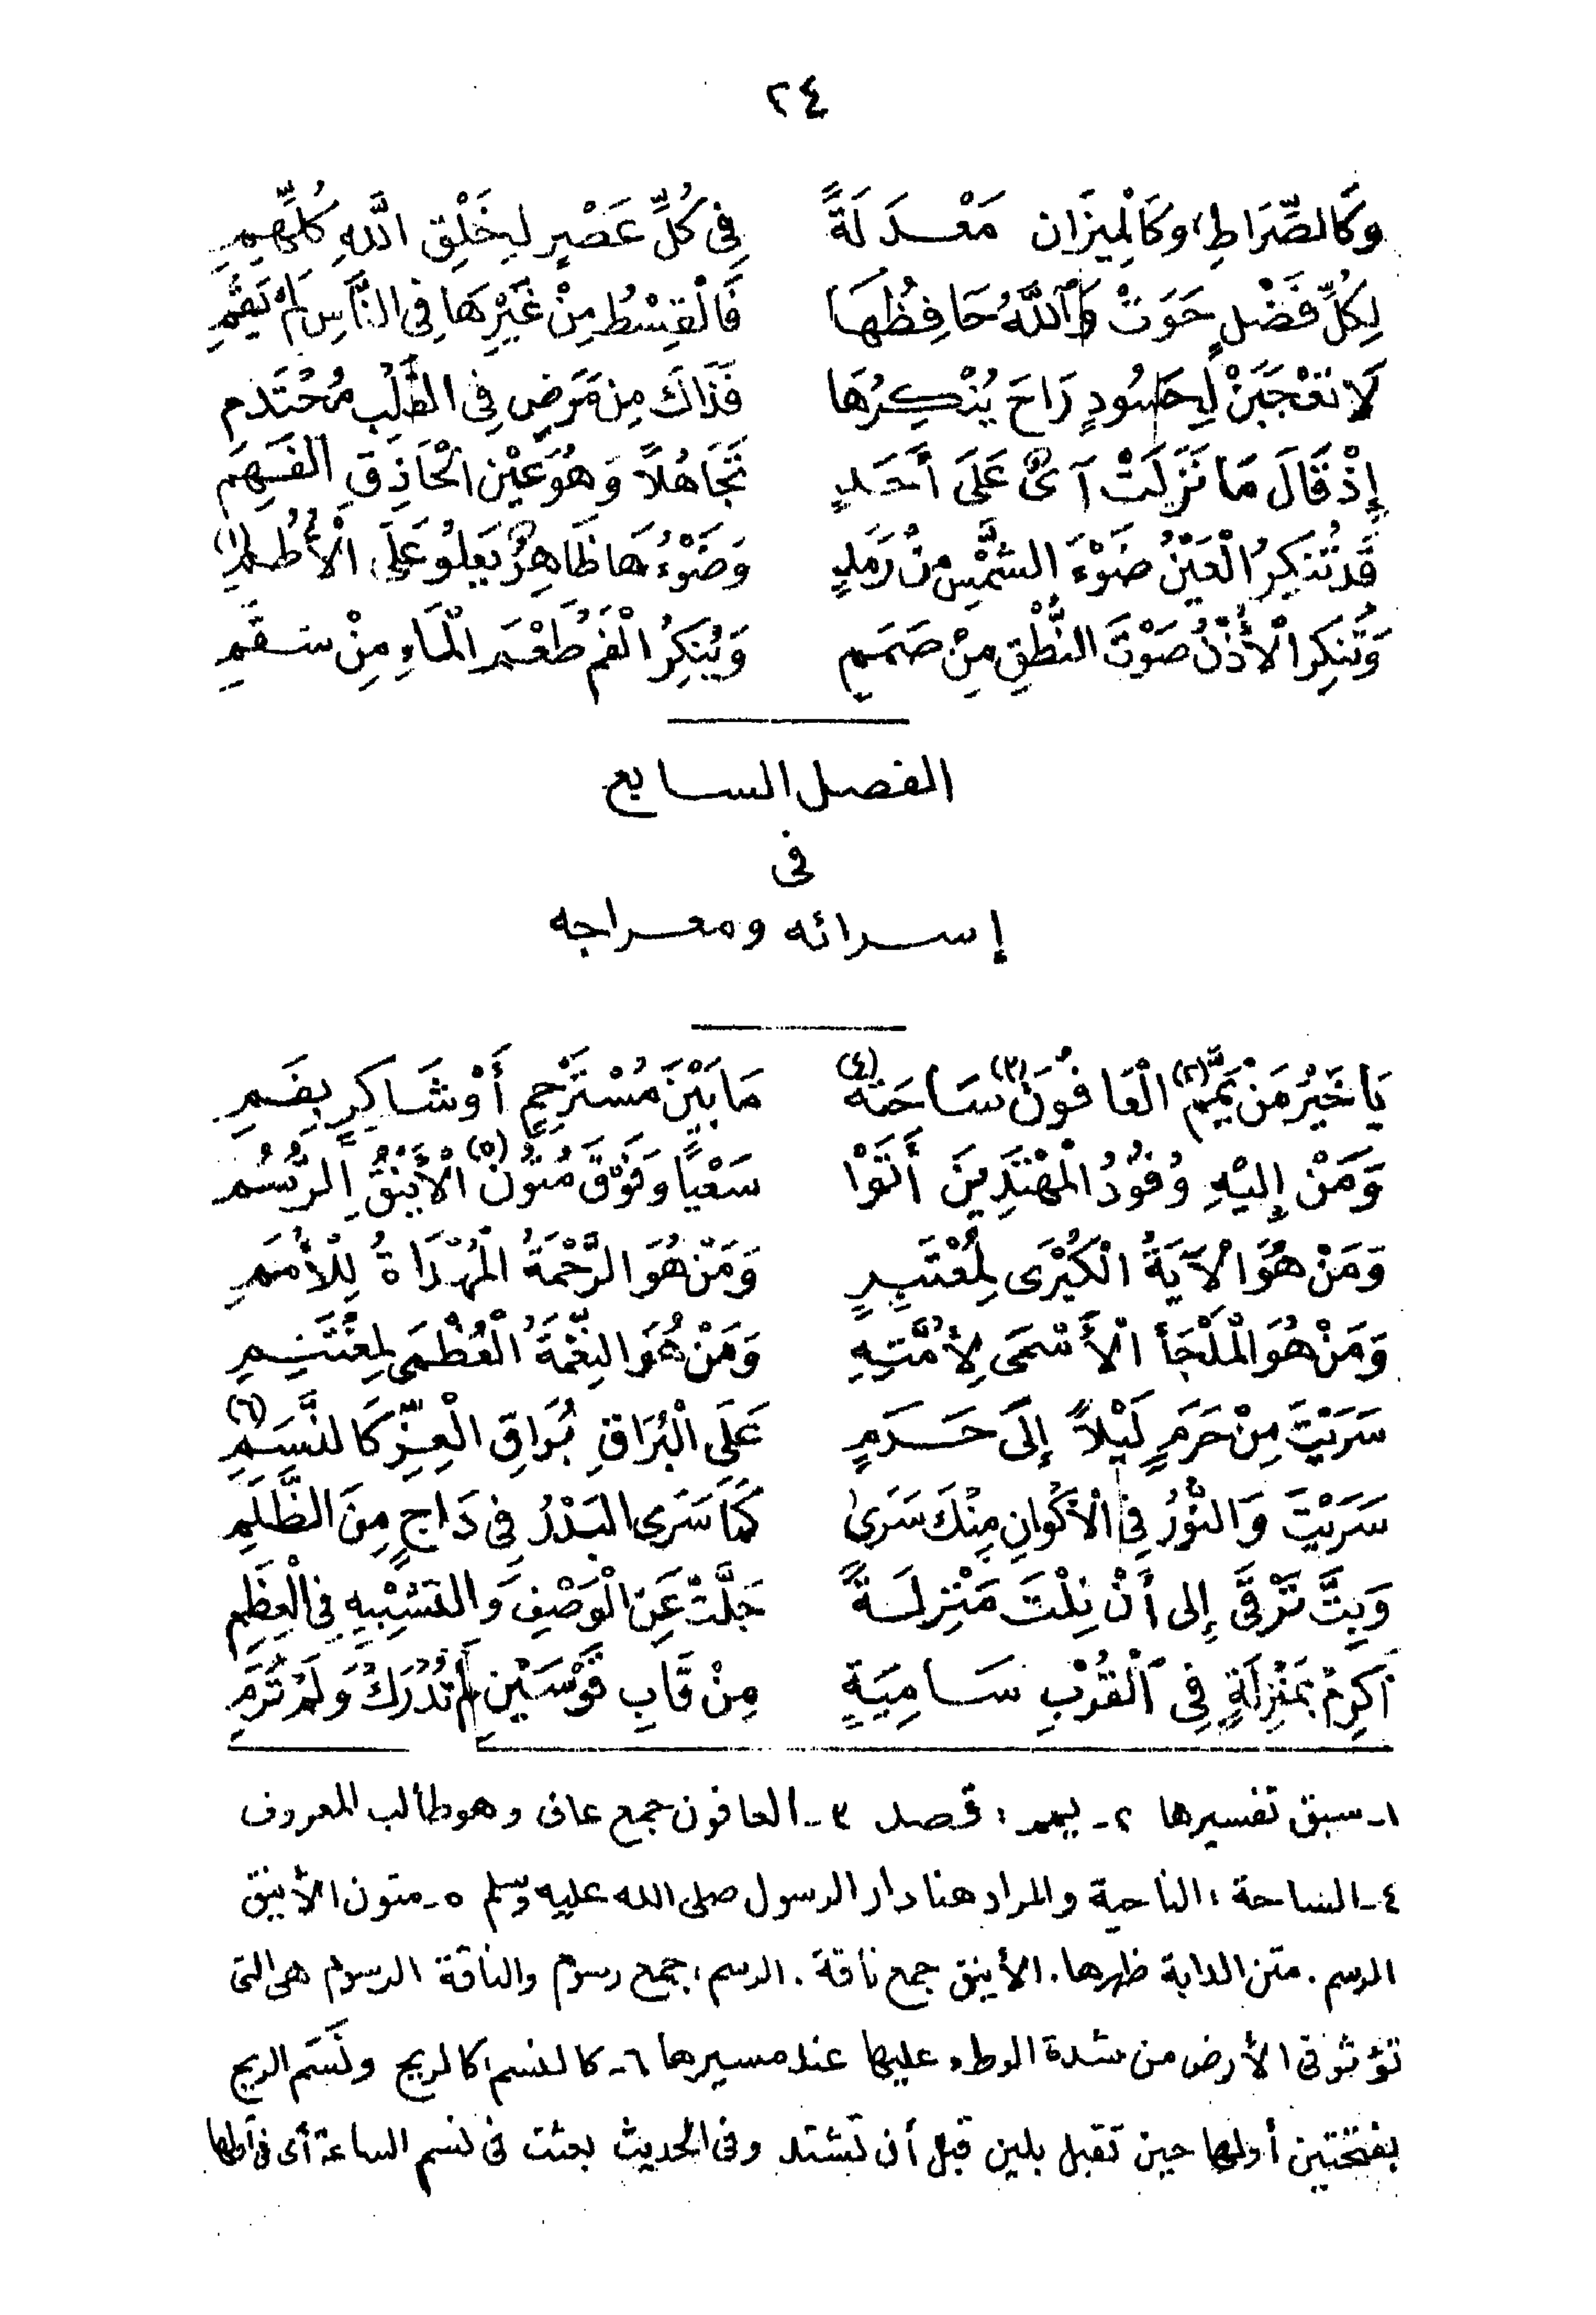 ٢٤
وَكَالصِّرَاطِ، وكَالْمِيزَانِ مَعْدَلَةً فِى كُلِّ عَصْرٍ لِخَلْقِ اللَّهِ كُلِّهِمِ
لِكُلِّ فَضْلٍ حَوَتْ وَاللَّهُ حَافِظُهَا فَالْقِسْطُ مِنْ غَيْرِهَا فِى النَّاسِ لَمْ يَقُمِ
لَا تَعْجَبَنْ لِحَسُودٍ رَاحَ يُنْكِرُهَا فَذَاكَ مِن مَرَضٍ فِى القَلْبِ مُحْتَدَم
إِذْ قَالَ مَا نَزَلَتْ آىٌ عَلَى أَحَدٍ تَجَاهُلاً وَهُوَ عَيْن الْحَاذِقِ الفَهِمِ
قَدْ تُنكِرُ الْعَيْنُ ضَوْءَ الشَّمْسِ مِنْ رَمَدٍ وَضَوْءُهَا ظَاهِرٌ يَعلُو عَلَى الْأُطُمِ (١)
وَتُنكِرُ الْأُذْنُ صَوْتَ النُّطْقِ مِنْ صَمَمٍ وَيُنكِرُ الْفَمُ طَعْمَ الْمَاءِ مِنْ سَقَمِ
الفصل السابع
فى
إسرائه ومعراجه
يَا خَيْرَ مَنْ يَمَّمَ (٢) الْعَافُونَ (٣) سَاحَتَهُ (٤) مَا بَيْنَ مُسْتَرْحِمٍ أَوْ شَاكِرٍ بِفَمِ
وَمَنْ إِلَيْهِ وُفُودُ الْمُهْتَدِينَ أَتَوْا سَعْياً وَفَوْقَ مُتُونِ (٥) الْأَيْنُقِ الرُّسُمِ
وَمَنْ هُوَ الْآيَةُ الْكُبْرَى لِمُعْتَبِرٍ وَمَنْ هُوَ الرَّحْمَةُ الْمُهْدَاةُ لِلْأُمَمِ
وَمَنْ هُوَ الْمَلْجَأُ الْأَسْمَى لِأُمَّتِهِ وَمَنْ هُوَ النِّعْمَةُ الْعُظْمَى لِمُغْتَنِمِ
سَرَيْتَ مِنْ حَرَمٍ لَيْلاً إِلَى حَرَمٍ عَلَى الْبُرَاقِ بُرَاقِ الْعِزِّ كَالنَّسَمِ (٦)
سَرَيْتَ وَالنُّورُ فِى الْأَكْوَانِ مِنْكَ سَرَى كَمَا سَرَى البَدْرُ فِى دَاجٍ مِنَ الظُّلَمِ
وَبِتَّ تَرْقَى إِلى أَنْ نِلْتَ مَنْزِلَةً جَلَّتْ عَنِ الْوَصْفِ وَالتَشْبِيهِ فِى الْعِظَمِ
أَكرِمْ بِمَنْزِلَةٍ فِى الْقُرْبِ سَامِيَةٍ مِنْ قَابِ قَوْسَيْنِ لَمْ تُدْرَكْ وَلَمْ تُرَمِ
١- سبق تفسيرها ٢- يمم : قصد ٣- العافون جمع عافى وهو طالب المعروف
٤- الساحة : الناحية والمراد هنا دار الرسول صلى الله عليه وسلم ٥- متون الأينق
الرسم . متن الدابة ظهرها . الأينق جمع ناقة . الرسم : جمع رسوم والناقة الرسوم هى التى
تؤثر فى الأرض من شدة الوطء عليها عند مسيرها ٦- كالنسم : كالريح ونَسَم الريح
بفتحتين أولها حين تقبل بلين قبل أن تشتد وفى الحديث بعثت فى نسم الساعة أى فى أولها